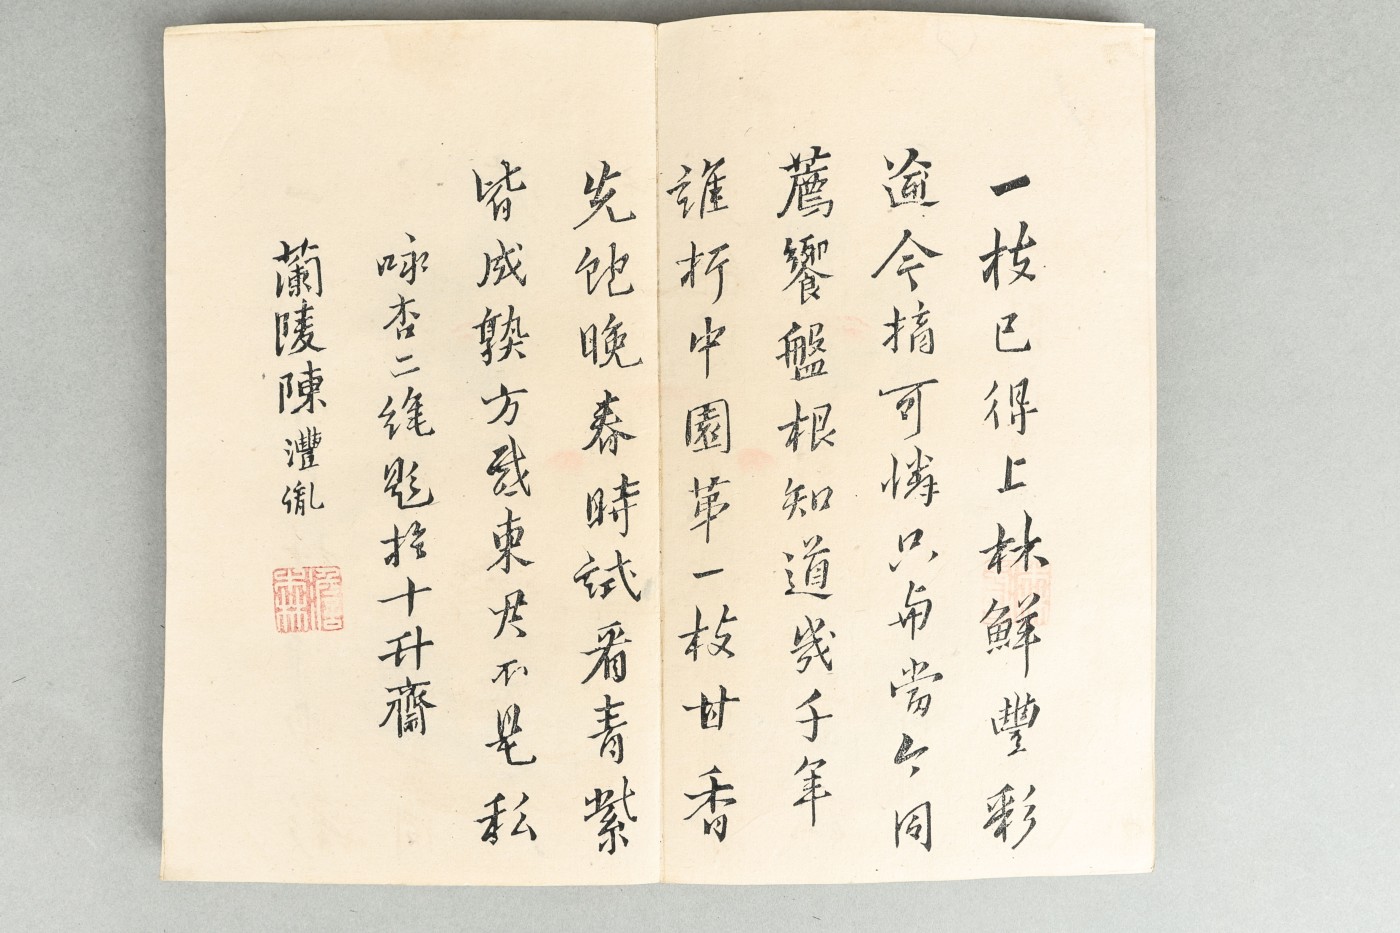 一枝已得上林鮮豐彩
今摘可憐只與當今同
薦饗盤根知道幾千年
誰折中園第一枝甘香
先飽晚春時試看青紫
皆成熟方感東君不是私
咏杏二絕題於十升齋
蘭陵陳灃胤